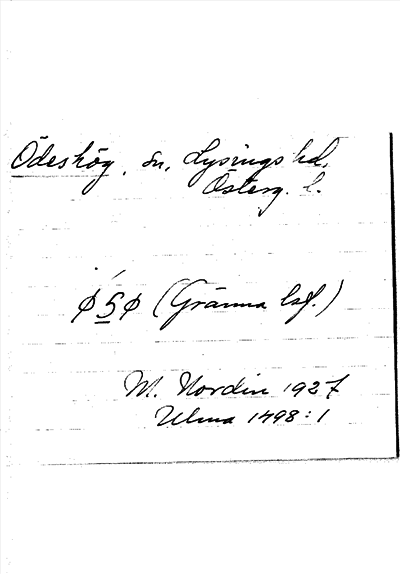 Ödeshög, sn, Lysings hd,
Österg. l.
ǿ S ø (Gränna lsf.)
M. Nordin 1927
Ulma 1498:1